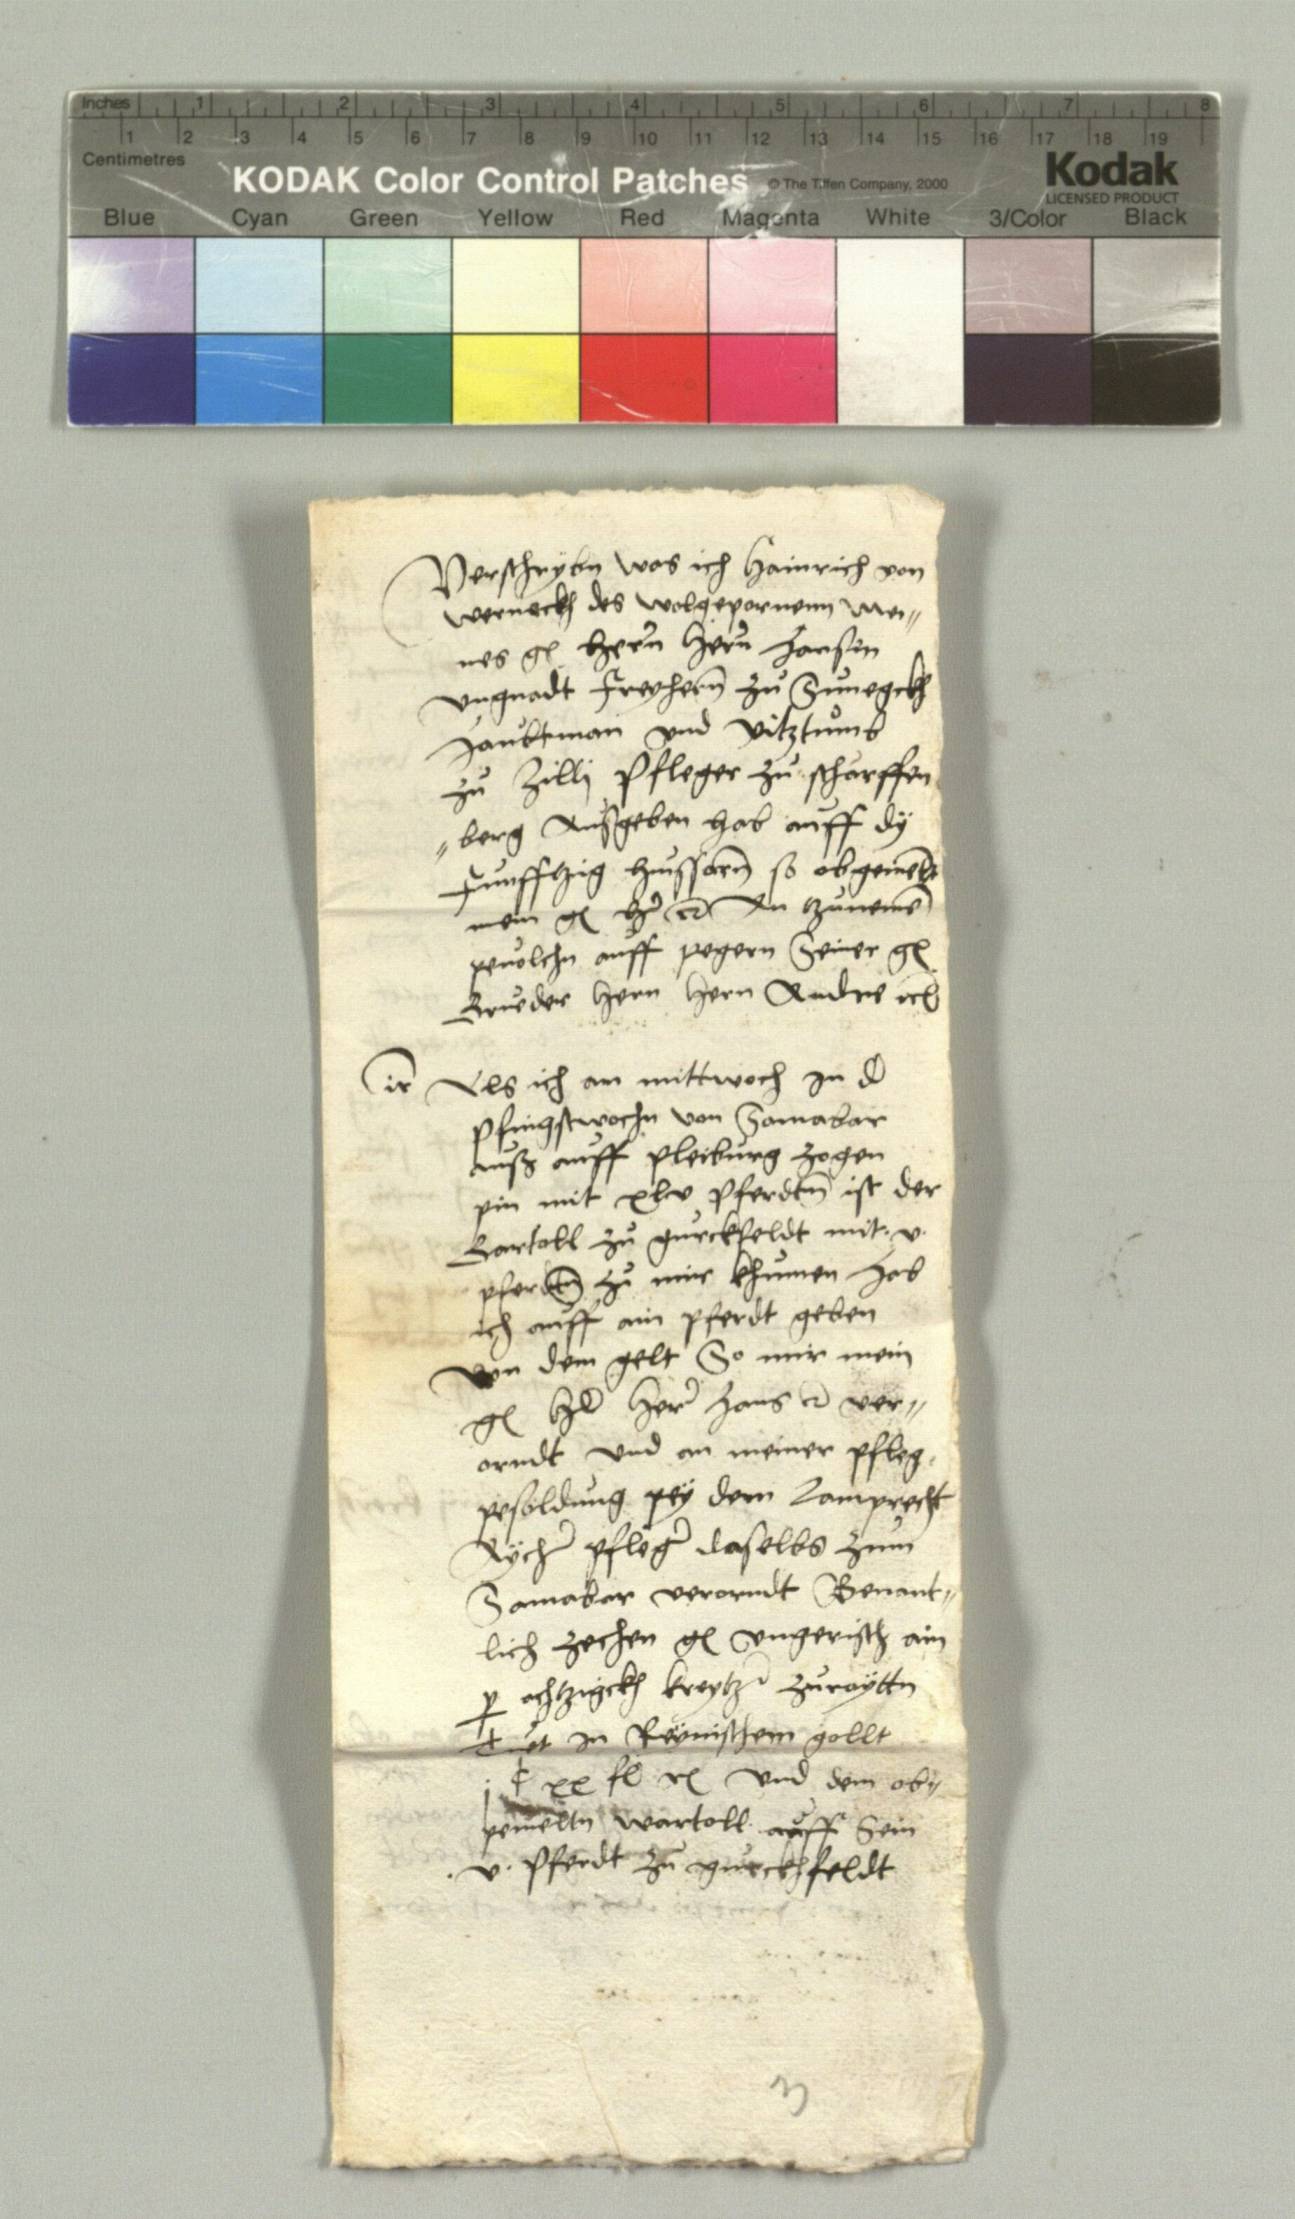 Inches 1 2 3 4 5 6 7 8
1 2 3 4 5 6 7 8 9 10 11 12 13 14 15 16 17 18 19
Centimetres
KODAK Color Control Patches © The Tiffen Company, 2000 Kodak
LICENSED PRODUCT
Blue Cyan Green Yellow Red Magenta White 3/Color Black
Verschrybn was ich Hainrich von
werneckh des wolgepornenn mei„
nes g hern hern Hansen
vngnadt Freyhern zu Sunegckh
Haubtman vnd vitztumb
zu Zilli Pfleger zu scharffen
„berg Ausgeben hab auff dÿ
Funfftzig hussarn so obgemelt
mein g her An tzunemen
peuolchn auff pegern Seiner g
Brueder hern hern Andre
Als ich am mittwoch In d
Pfingstwochn von Samabar
auß auff Pleiburg zogen
pin mit xlv Pferdtn ist der
Bartoll zu gurckfeldt mit .v.
pferdtn zu mir khumen Hab
ich auff ain pferdt geben
von dem gelt So mir mein
g her Hans ver„
orndt vnd an meiner pfleg
pesoldung peÿ dem Lamprecht
pfleger daselbs zum
Samabar verorndt Benant„
lich zechen g vngerisch ain
p achtzigckh kreytzer zuraÿttn
Tuet In Reynischem gollt
xx fl r vnd dem ob„
gemeltn wartoll auff Sein
.v. Pferdt zu gurckhfeldt
3